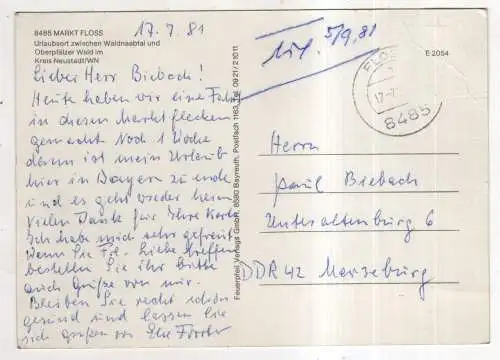 8485 MARKT FLOSS
Urlaubsort zwischen Waldnaabtal und
Oberpfälzer Wald im
Kreis Neustadt/WN
17.7.81
5/9.81
E 2054
Lieber Herr Biebach!
Heute haben wir eine Fahrt
in diesen Marktflecken
gemacht. Noch 1 Woche
dann ist mein Urlaub
hier in Bayern zu ende
und es geht wieder heim
Vielen Dank für Ihre Karte
Ich habe mich sehr gefreut.
Wenn Sie Frl. treffen
bestellen Sie ihr bitte
auch Grüße von mir.
Bleiben Sie recht schön
gesund und lassen Sie
sich grüßen von
Feuerpfeil Verlags GmbH, 8580 Bayreuth, Postfach 1163, Tel. 09 21 / 2 10 11
FLOSS
17.-7.
8485
Herrn
Paul Biebach
Unteraltenburg 6
DDR 42 Merseburg